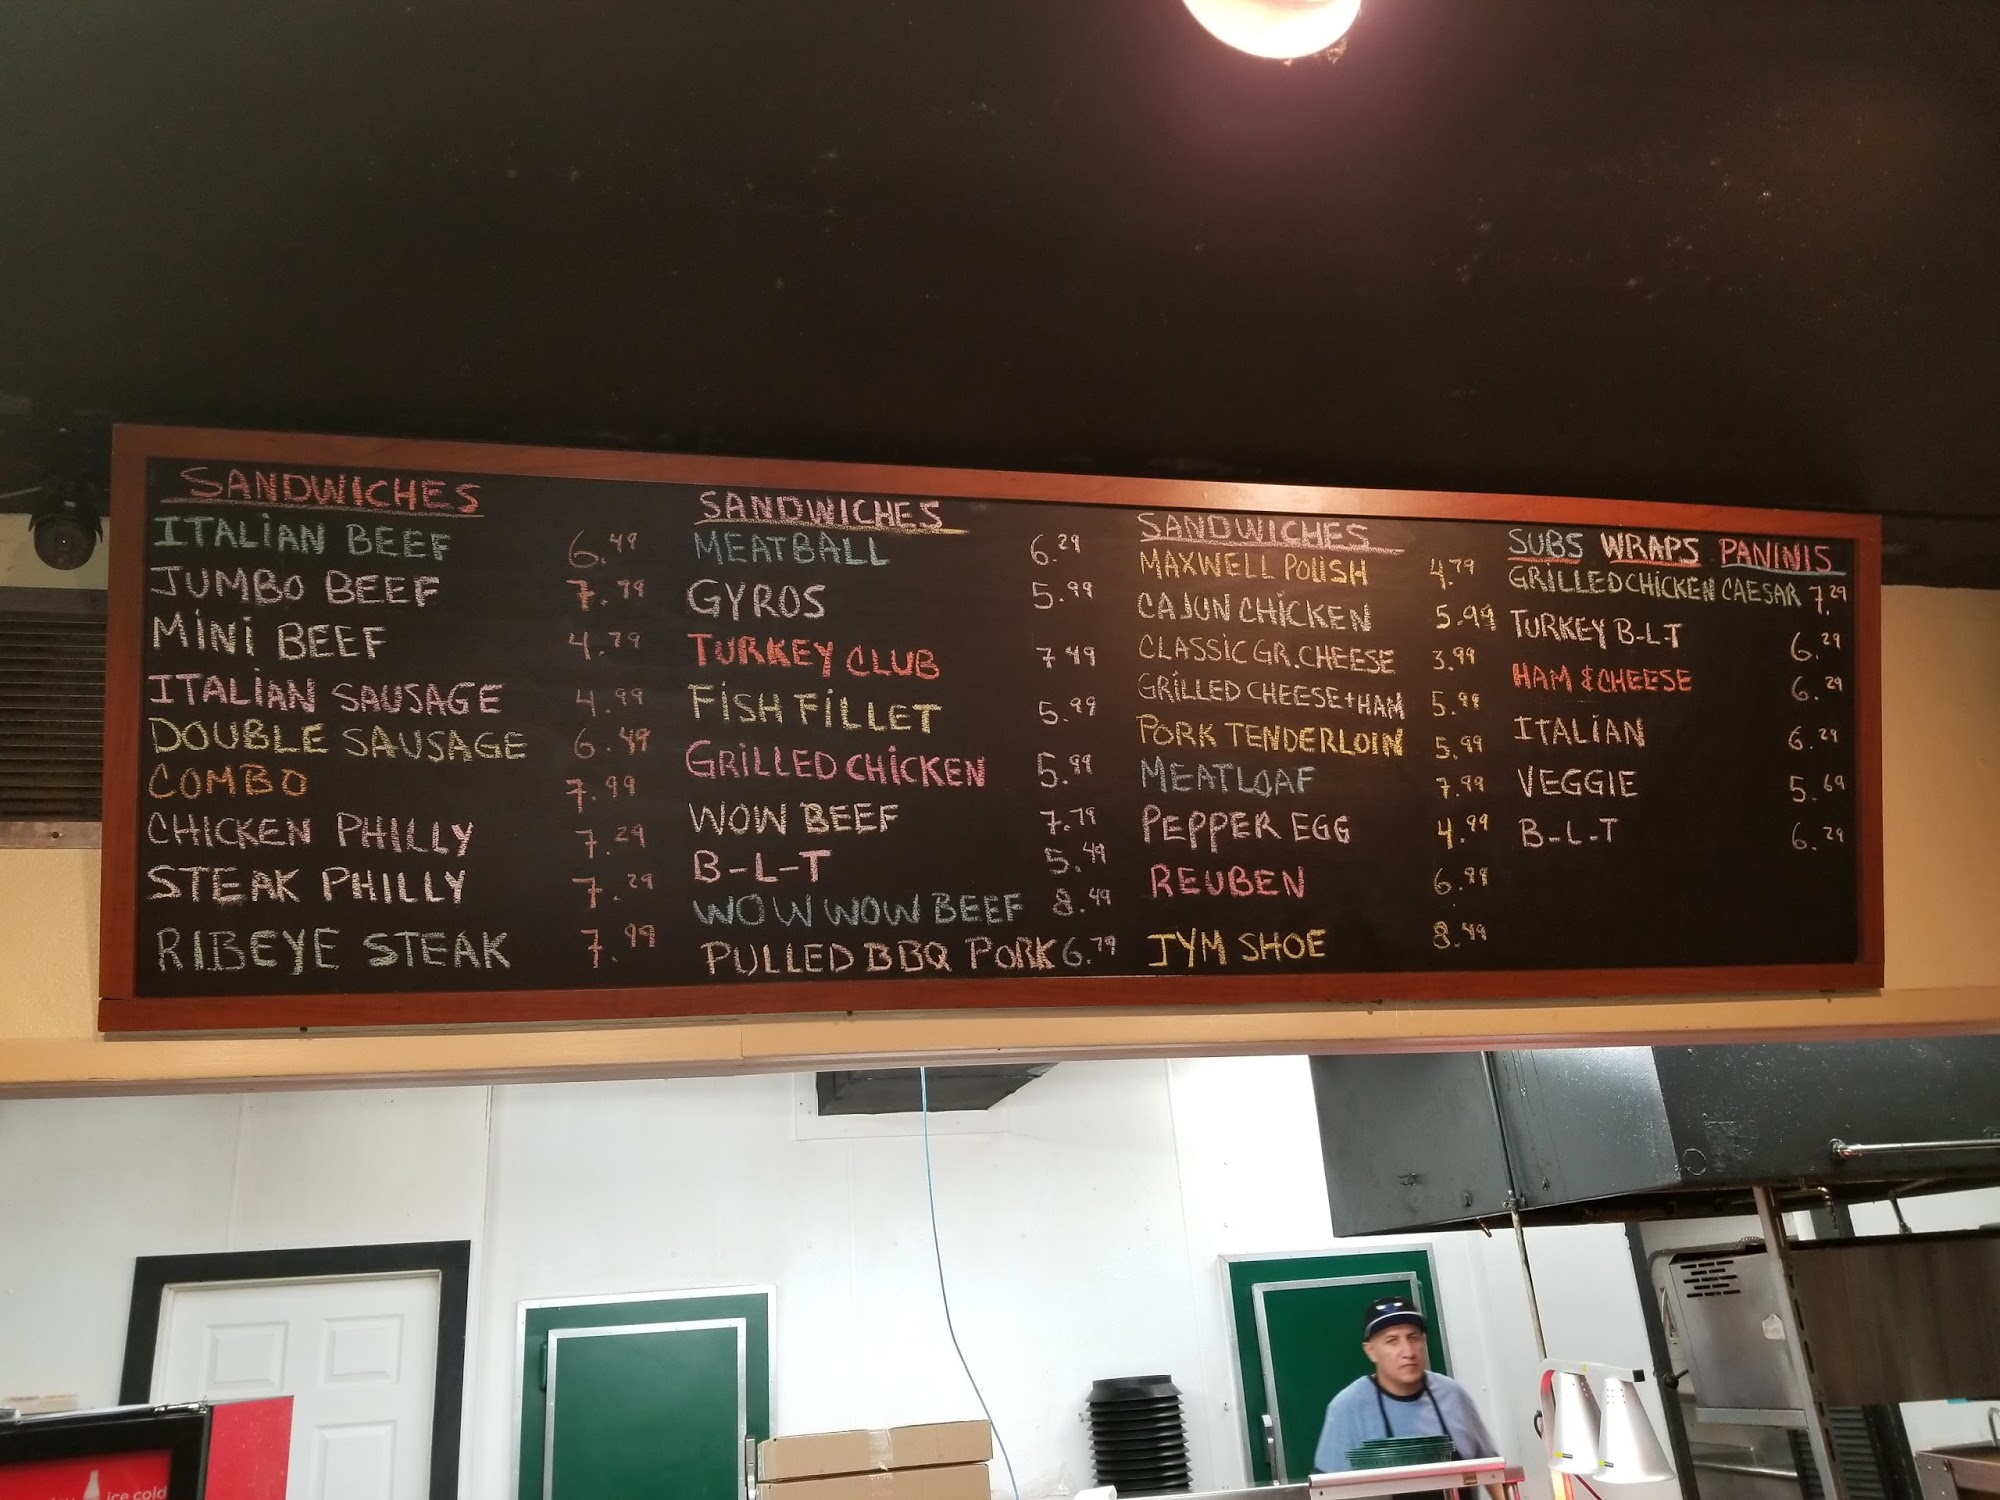 SANDWICHES
ITALIAN BEEF 6.49
JUMBO BEEF 7.99
MINI BEEF 4.79
ITALIAN SAUSAGE 4.99
DOUBLE SAUSAGE 6.49
COMBO 7.99
CHICKEN PHILLY 7.29
STEAK PHILLY 7.29
RIBEYE STEAK 7.99
SANDWICHES
MEATBALL 6.29
GYROS 5.99
TURKEY CLUB 7.49
FISH FILLET 5.99
GRILLED CHICKEN 5.99
WOW BEEF 7.79
B-L-T 5.49
WOW WOW BEEF 8.49
PULLED BBQ PORK 6.79
SANDWICHES
MAXWELL POLISH 4.79
CAJUN CHICKEN 5.99
CLASSIC GR. CHEESE 3.99
GRILLED CHEESE + HAM 5.99
PORK TENDERLOIN 5.99
MEATLOAF 7.99
PEPPER EGG 4.99
REUBEN 6.99
JYM SHOE 8.49
SUBS WRAPS PANINIS
GRILLED CHICKEN CAESAR 7.29
TURKEY B-L-T 6.29
HAM & CHEESE 6.29
ITALIAN 6.29
VEGGIE 5.69
B-L-T 6.29
ice cold